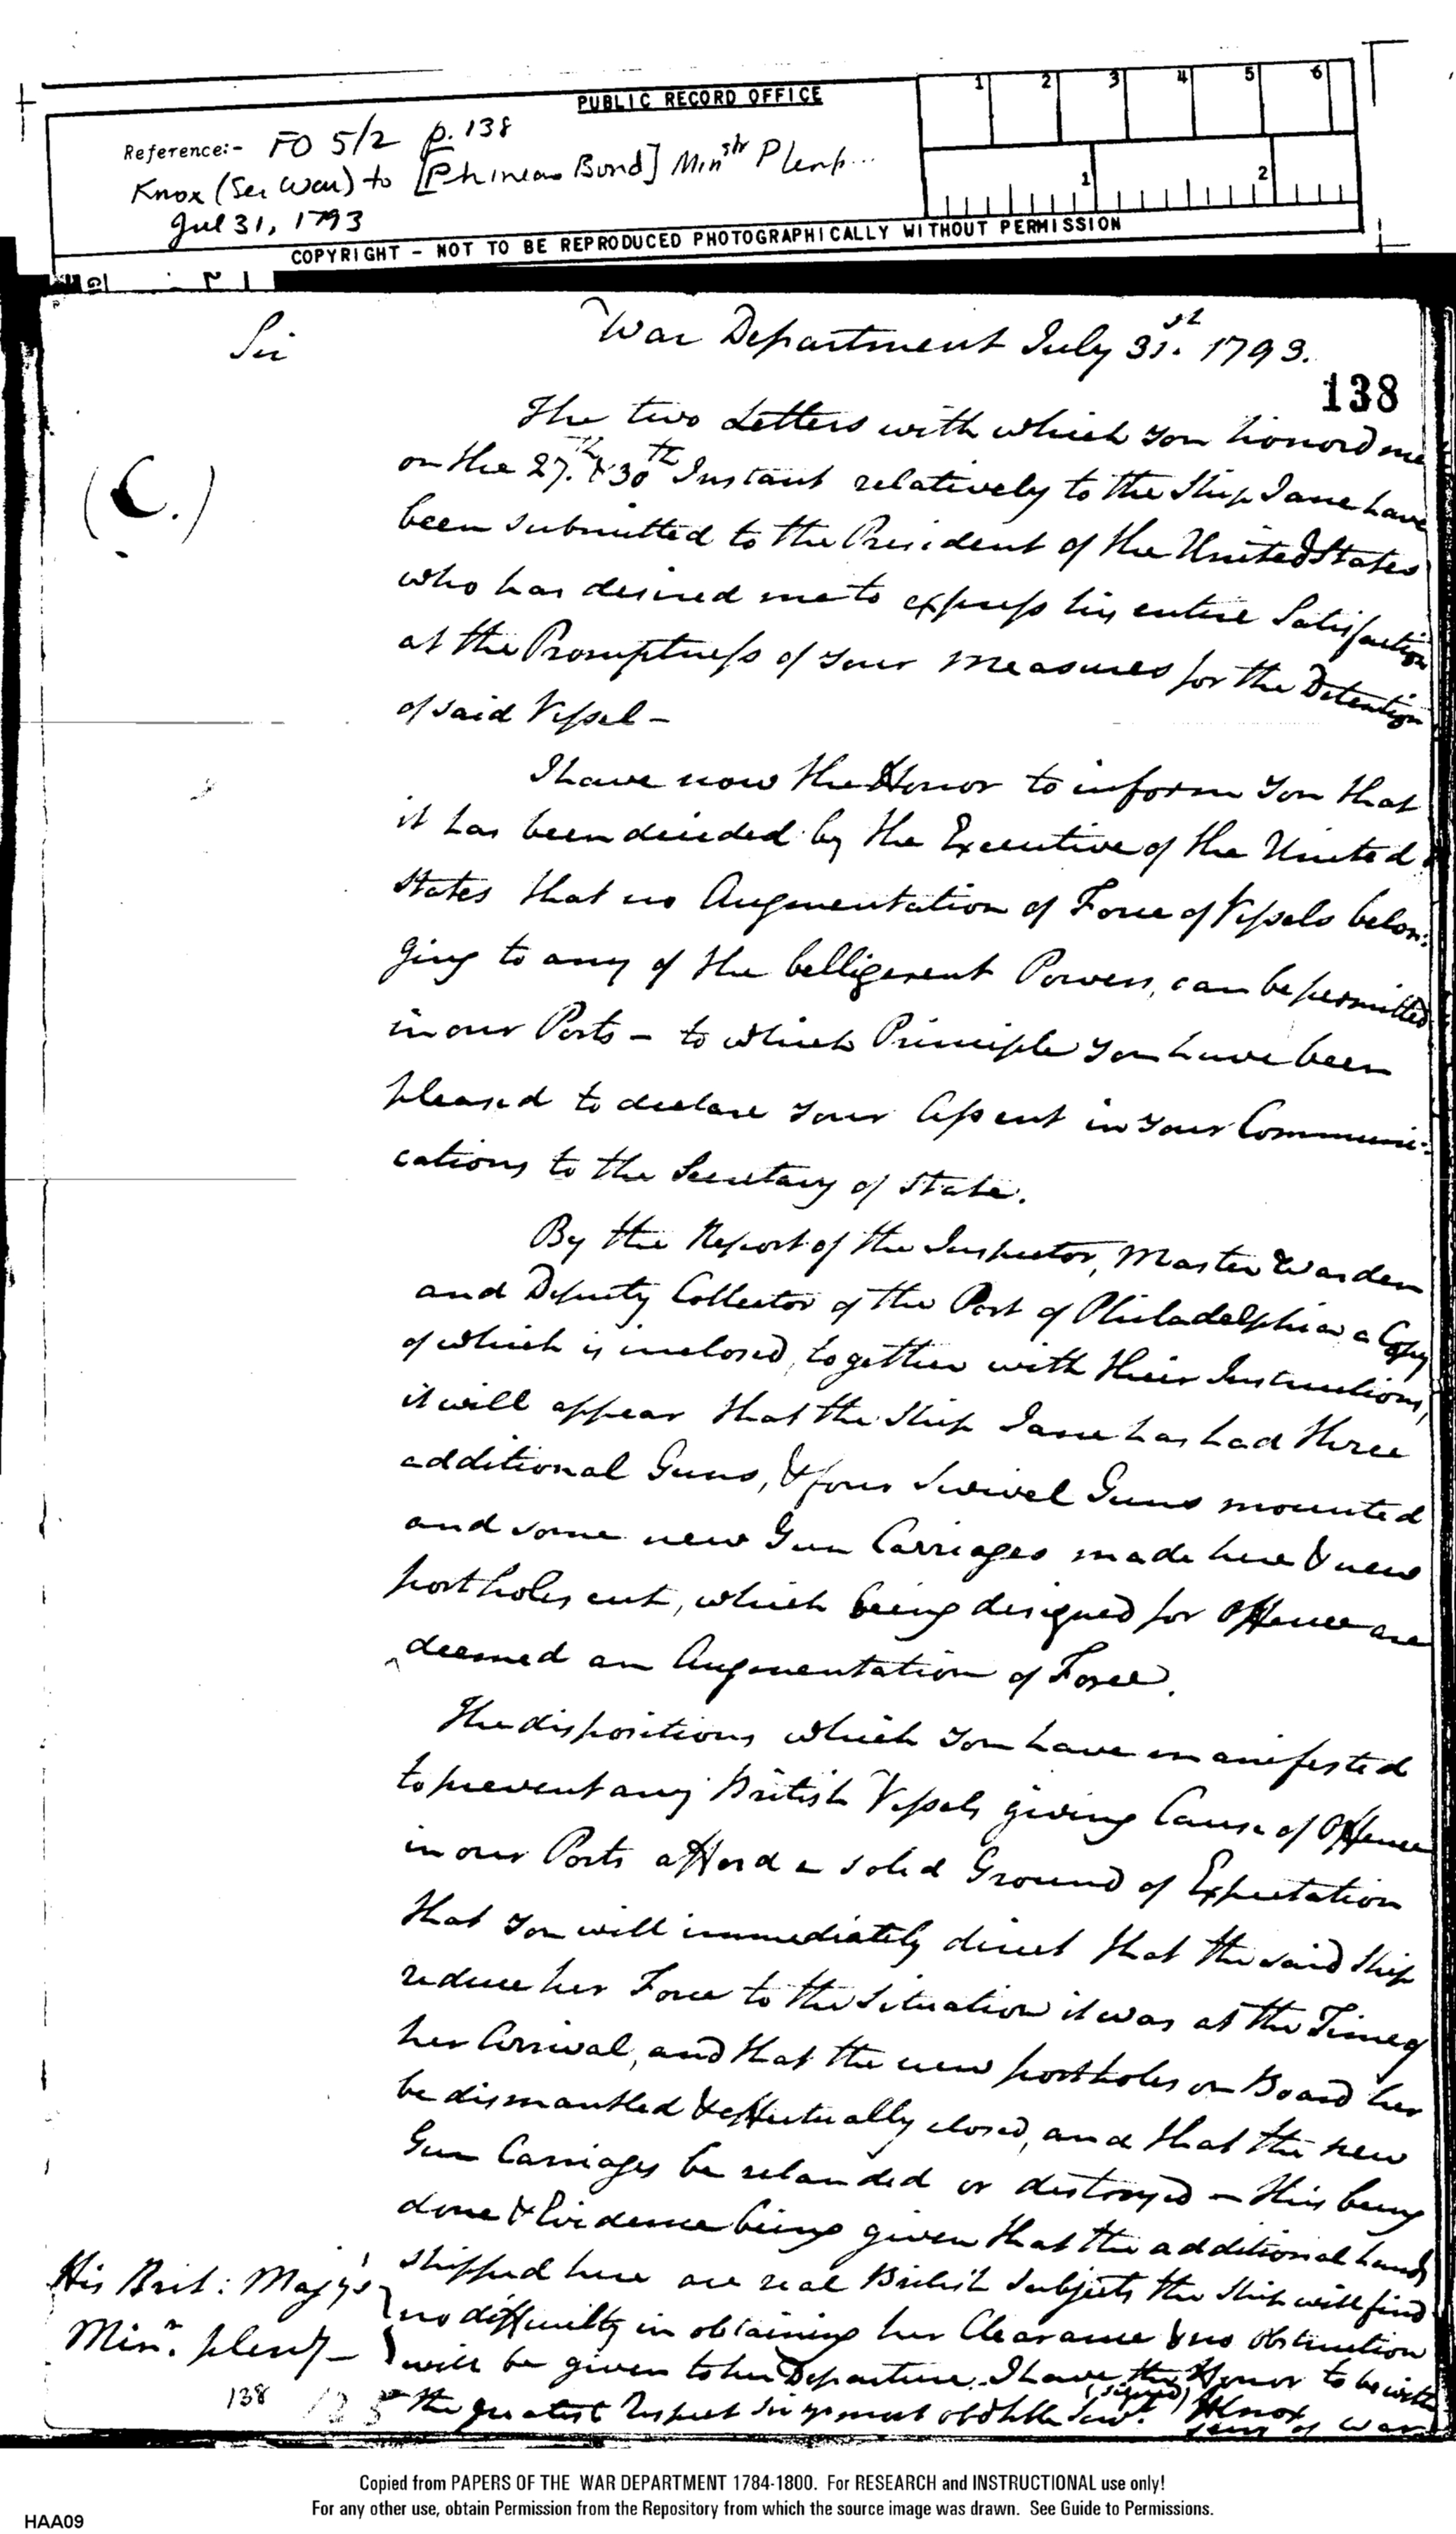 PUBLIC RECORD OFFICE
1 2 3 4 5 6
1 2
Reference:- FO 5/2 p. 138
Knox (Sec War) to [Phineas Bond] Minstr Plenp...
Jul 31, 1793
COPYRIGHT - NOT TO BE REPRODUCED PHOTOGRAPHICALLY WITHOUT PERMISSION
Sir
War Department July 31st. 1793.
138
(C.)
The two Letters with which you honord me
on the 27.th & 30th Instant relatively to the Ship Jane have
been submitted to the President of the United States
who has desired me to express his entire Satisfaction
at the Promptness of your measures for the Detention
of said Vessel -
I have now the Honor to inform you that
it has been decided by the Executive of the United
States that no Augmentation of Force of Vessels belon:
ging to any of the belligerent Powers, can be permitted
in our Ports - to which Principle you have been
pleased to declare your Assent in your Communi:
cations to the Secretary of State.
By the Report of the Inspector, Master Warden
and Deputy Collector of the Port of Philadelphia a Copy
of which is inclosed, together with their Instructions,
it will appear that the Ship Jane has had three
additional Guns, & four Swivel Guns mounted
and some new Gun Carriages made here & new
portholes cut, which being designed for Offence are
deemed an Augmentation of Force.
The dispositions which you have manifested
to prevent any British Vessels giving Cause of Offence
in our Ports afford a solid Ground of Expectation
that you will immediately direct that the said Ship
reduce her Force to the Situation it was at the Time of
her Arrival, and that the new portholes on Board her
be dismantled & effectually closed, and that the new
Gun Carriages be relanded or destroyed - this being
done & Evidence being given that the additional hands
shipped here are real British Subjects the Ship will find
no difficulty in obtaining her Clearance & no obstruction
will be given to her Departure. I have the Honor to be with
the greatest Respect Sir yr most obdt hble Servt.
(signed) HKnox
Secy of War
His Brit: Majy's
Minr. plenty -
138
Copied from PAPERS OF THE WAR DEPARTMENT 1784-1800. For RESEARCH and INSTRUCTIONAL use only!
For any other use, obtain Permission from the Repository from which the source image was drawn. See Guide to Permissions.
HAA09